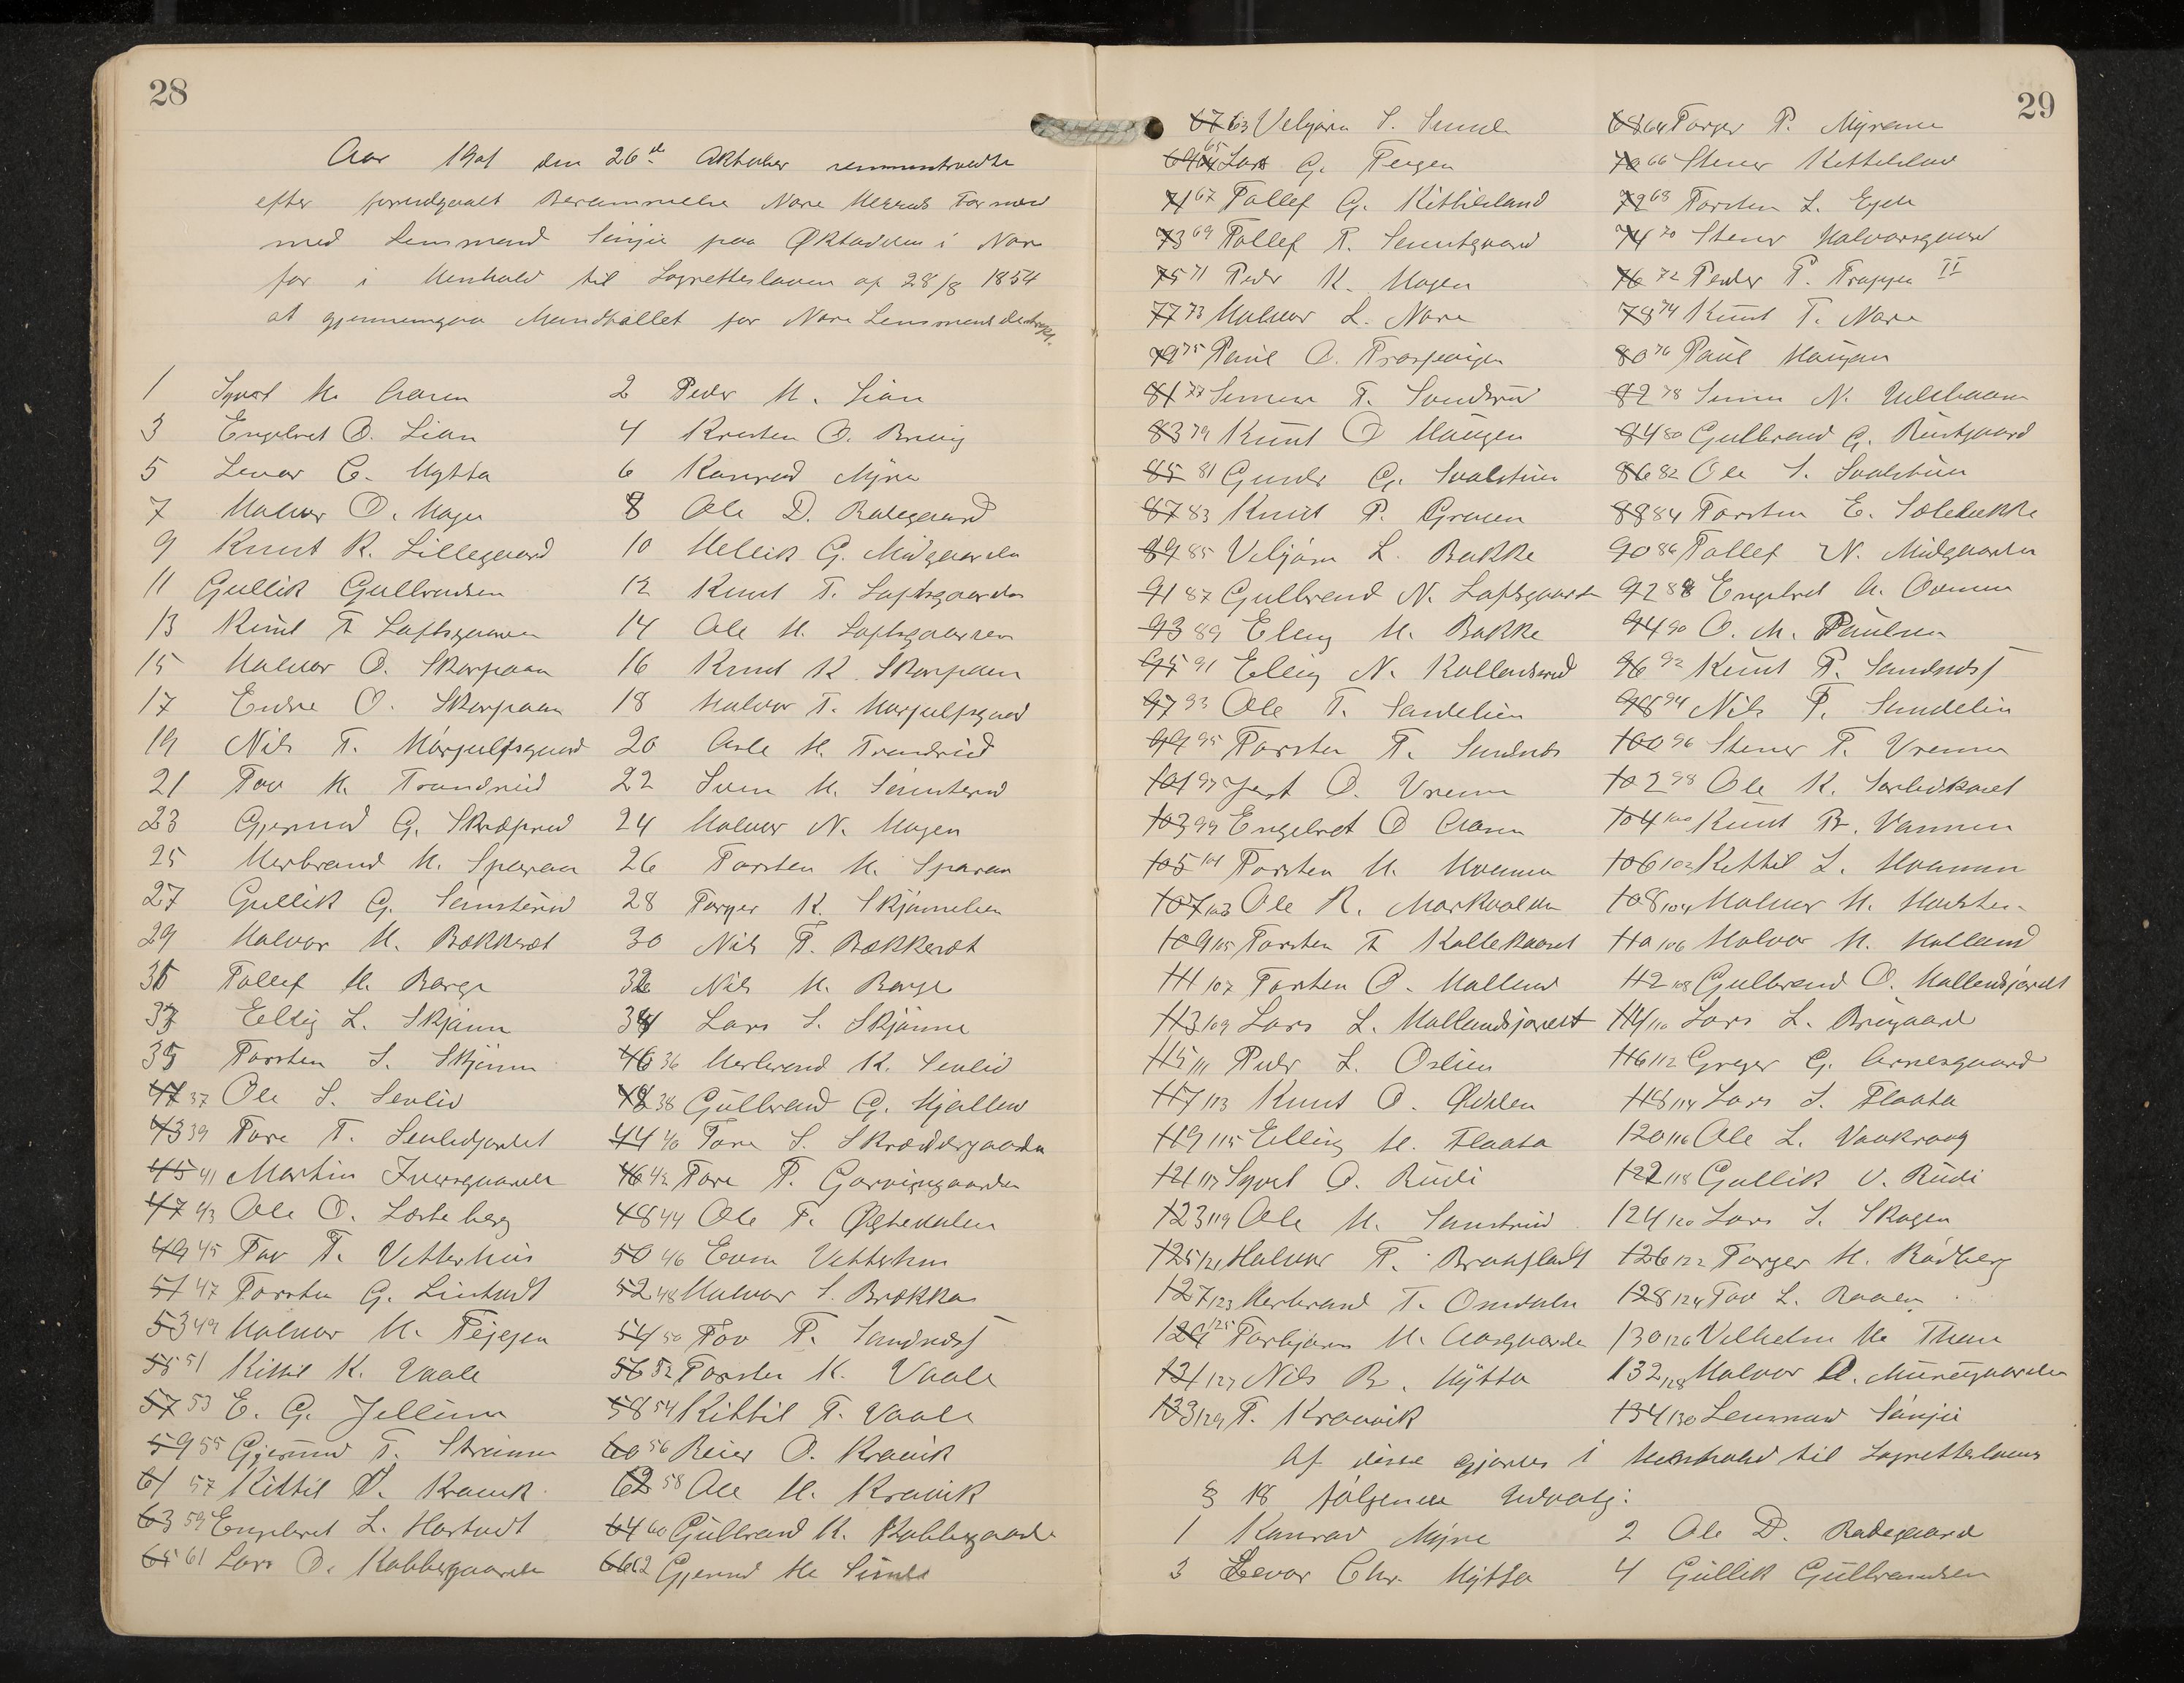 28
Aar 1901 den 26de Oktober sammentraadte
efter forudgaaet Berammelse Nore Herreds Formand
med Lensmand Sönju paa Øktedalen i Nore
for i Henhold til Lagretteloven af 28/8 1854
at gjennemgaa Mandtallet for Nore Lensmandsdistrikt.
1 Syvert H. Aasen 2 Peder H. Lian
3 Engebret O. Lian 4 Kresten O. Bruug
5 Levor C. Hytta 6 Konrad Myre
7 Halvor O. Hagen 8 Ole D. Rudegaard
9 Knut K. Lillegaard 10 Hellik G. Midgaarden
11 Gullik Gulbrandsen 12 Knut T. Loftsgaarden
13 Knut T. Loftsgaarden 14 Ole H. Loftsgaarden
15 Halvor O. Skarpaan 16 Knut K. Skarpaan
17 Endre O. Skarpaan 18 Halvor T. Hærjulfsgaard
19 Nils T. Hærjulfsgaard 20 Asle H. Trondrud
21 Tov H. Trondrud 22 Sven H. Sønsterud
23 Gjermund G. Skræprud 24 Halvor N. Hagen
25 Herbrand H. Speraan 26 Torsten H. Speraan
27 Gullik G. Sønsterud 28 Torger K. Skjønnelien
29 Halvor H. Bækkerøt 30 Nils T. Bækkerøt
31 Tollef H. Berge 32 Nils H. Berge
33 Elling L. Skjønne 34 Lars S. Skjønne
35 Torsten S. Skjønne 36 Herbrand K. Sevlid
37 Ole S. Sevlid 38 Gulbrand G. Hjallen
39 Tore T. Sevlidjordet 40 Tore S. Skræddergaarden
41 Martin Iversgaarden 42 Tore T. Garvergaarden
43 Ole O. Lærteberg 44 Ole T. Øgtedalen
45 Tov T. Vetterhus 46 Even Vetterhus
47 Torsten G. Lintvedt 48 Halvor S. Brække
49 Halvor H. Fejgen 50 Tov T. Sandnæs
51 Kittil K. Vaale 52 Torsten K. Vaale
53 E. G. Jellum 54 Kittil T. Vaale
55 Gjermund T. Strømmen 56 Reier O. Kravik
57 Kittil T. Kravik 58 Ole H. Kravik
59 Engebret L. Hartvedt 60 Gulbrand K. Kobbergaarden
61 Lars O. Kobbergaarden 62 Gjermund H. Simle
29
63 Vebjørn S. Simle 64 Torger P. Myrene
65 Lars G. Fergen 66 Stener Kittilsland
67 Tollef G. Kittilsland 68 Torsten L. Egde
69 Tollef T. Senntgaard 70 Stener Halvorsgaard
71 Peder K. Hagen 72 Peder P. Trappen II
73 Halvor L. Nore 74 Knut T. Nore
75 Paul O. 76 Paul Haugen
77 Simen T. Sandrud 78 Simen N.
79 Knut O Haugen 80 Gulbrand G. Rustgaard
81 Gunder G. Svalstuen 82 Ole S. Svalstuen
83 Knut P. Groven 84 Torsten E. Soleløkke
85 Vebjørn L. Bakke 86 Tollef N. Midgaarden
87 Gulbrand N. Loftsgaard 88 Engebret A. Ovenen
89 Elling H. Bakke 90 O. M. Paulsen
91 Elling N. Kollandsrud 92 Knut T. Sandnæs
93 Ole T. Sandelien 94 Nils T. Sandelien
95 Torsten T. Sandnæs 96 Stener T. Vrenne
97 Jest O. Vrenne 98 Ole K. Sevlidkaset
99 Engebret O Aasen 100 Knut B. Vannen
101 Torsten H. Hvammen 102 Kittil L. Hvammen
103 Ole R. Markvolden 104 Halvor H.
105 Torsten T. Kollekaaset 106 Halvor H. Halland
107 Torsten O. Halland 108 Gulbrand O. Hallandsjordet
109 Lars L. Hallandsjordet 110 Lars L. Brugaard
111 Peder L. Oslien 112 Greger G. Arnesgaard
113 Knut O. Ødden 114 Lars S. Flaata
115 Elling H. Flaata 116 Ole L. Vaakraag
117 Syvert O. Rudi 118 Gullik O. Rudi
119 Ole H. Sønstrud 120 Lars S. Skogen
121 Halvor T. Brakfladt 122 Torger H. Rødberg
123 Herbrand T. Omdalen 124 Tov L. Raaen
125 Torbjørn H. Aasgaarden 126 Vilhelm H. Thun
127 Nils B. Hytta 128 Halvor O. Muregaarden
129 T. Kravik 130 Lensmand Sönju
Af disse gjøres i Henhold til Lagrettelovens
§ 18 følgende Udvalg:
1 Konrad Myre 2 Ole D. Rudegaard
3 Levor Chr. Hytta 4 Gullik Gulbrandsen